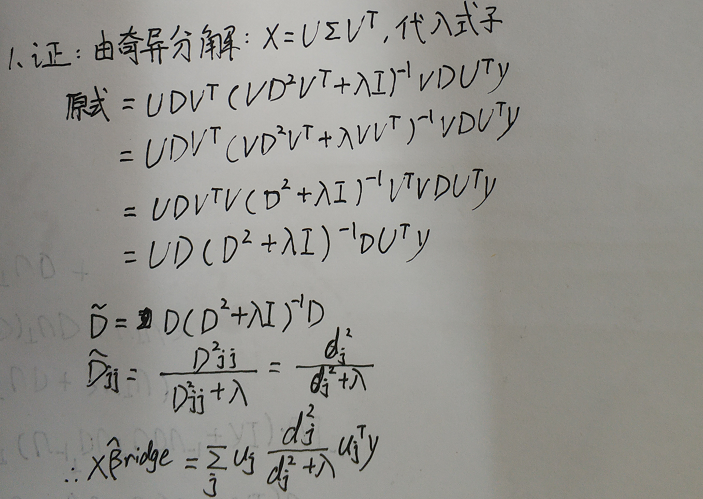 1. 证：由奇异分解：X=UΣV^T，代入式子
原式 = UDV^T(VD^2V^T+λI)^{-1}VDU^Ty
= UDV^T(VD^2V^T+λVV^T)^{-1}VDU^Ty
= UDV^TV(D^2+λI)^{-1}V^TVDU^Ty
= UD(D^2+λI)^{-1}DU^Ty
D̃ = D(D^2+λI)^{-1}D
D̃_{jj} = \frac{D^2_{jj}}{D^2_{jj}+λ} = \frac{d_j^2}{d_j^2+λ}
∴ Xβ̂ridge = \sum_j u_j \frac{d_j^2}{d_j^2+λ} u_j^Ty